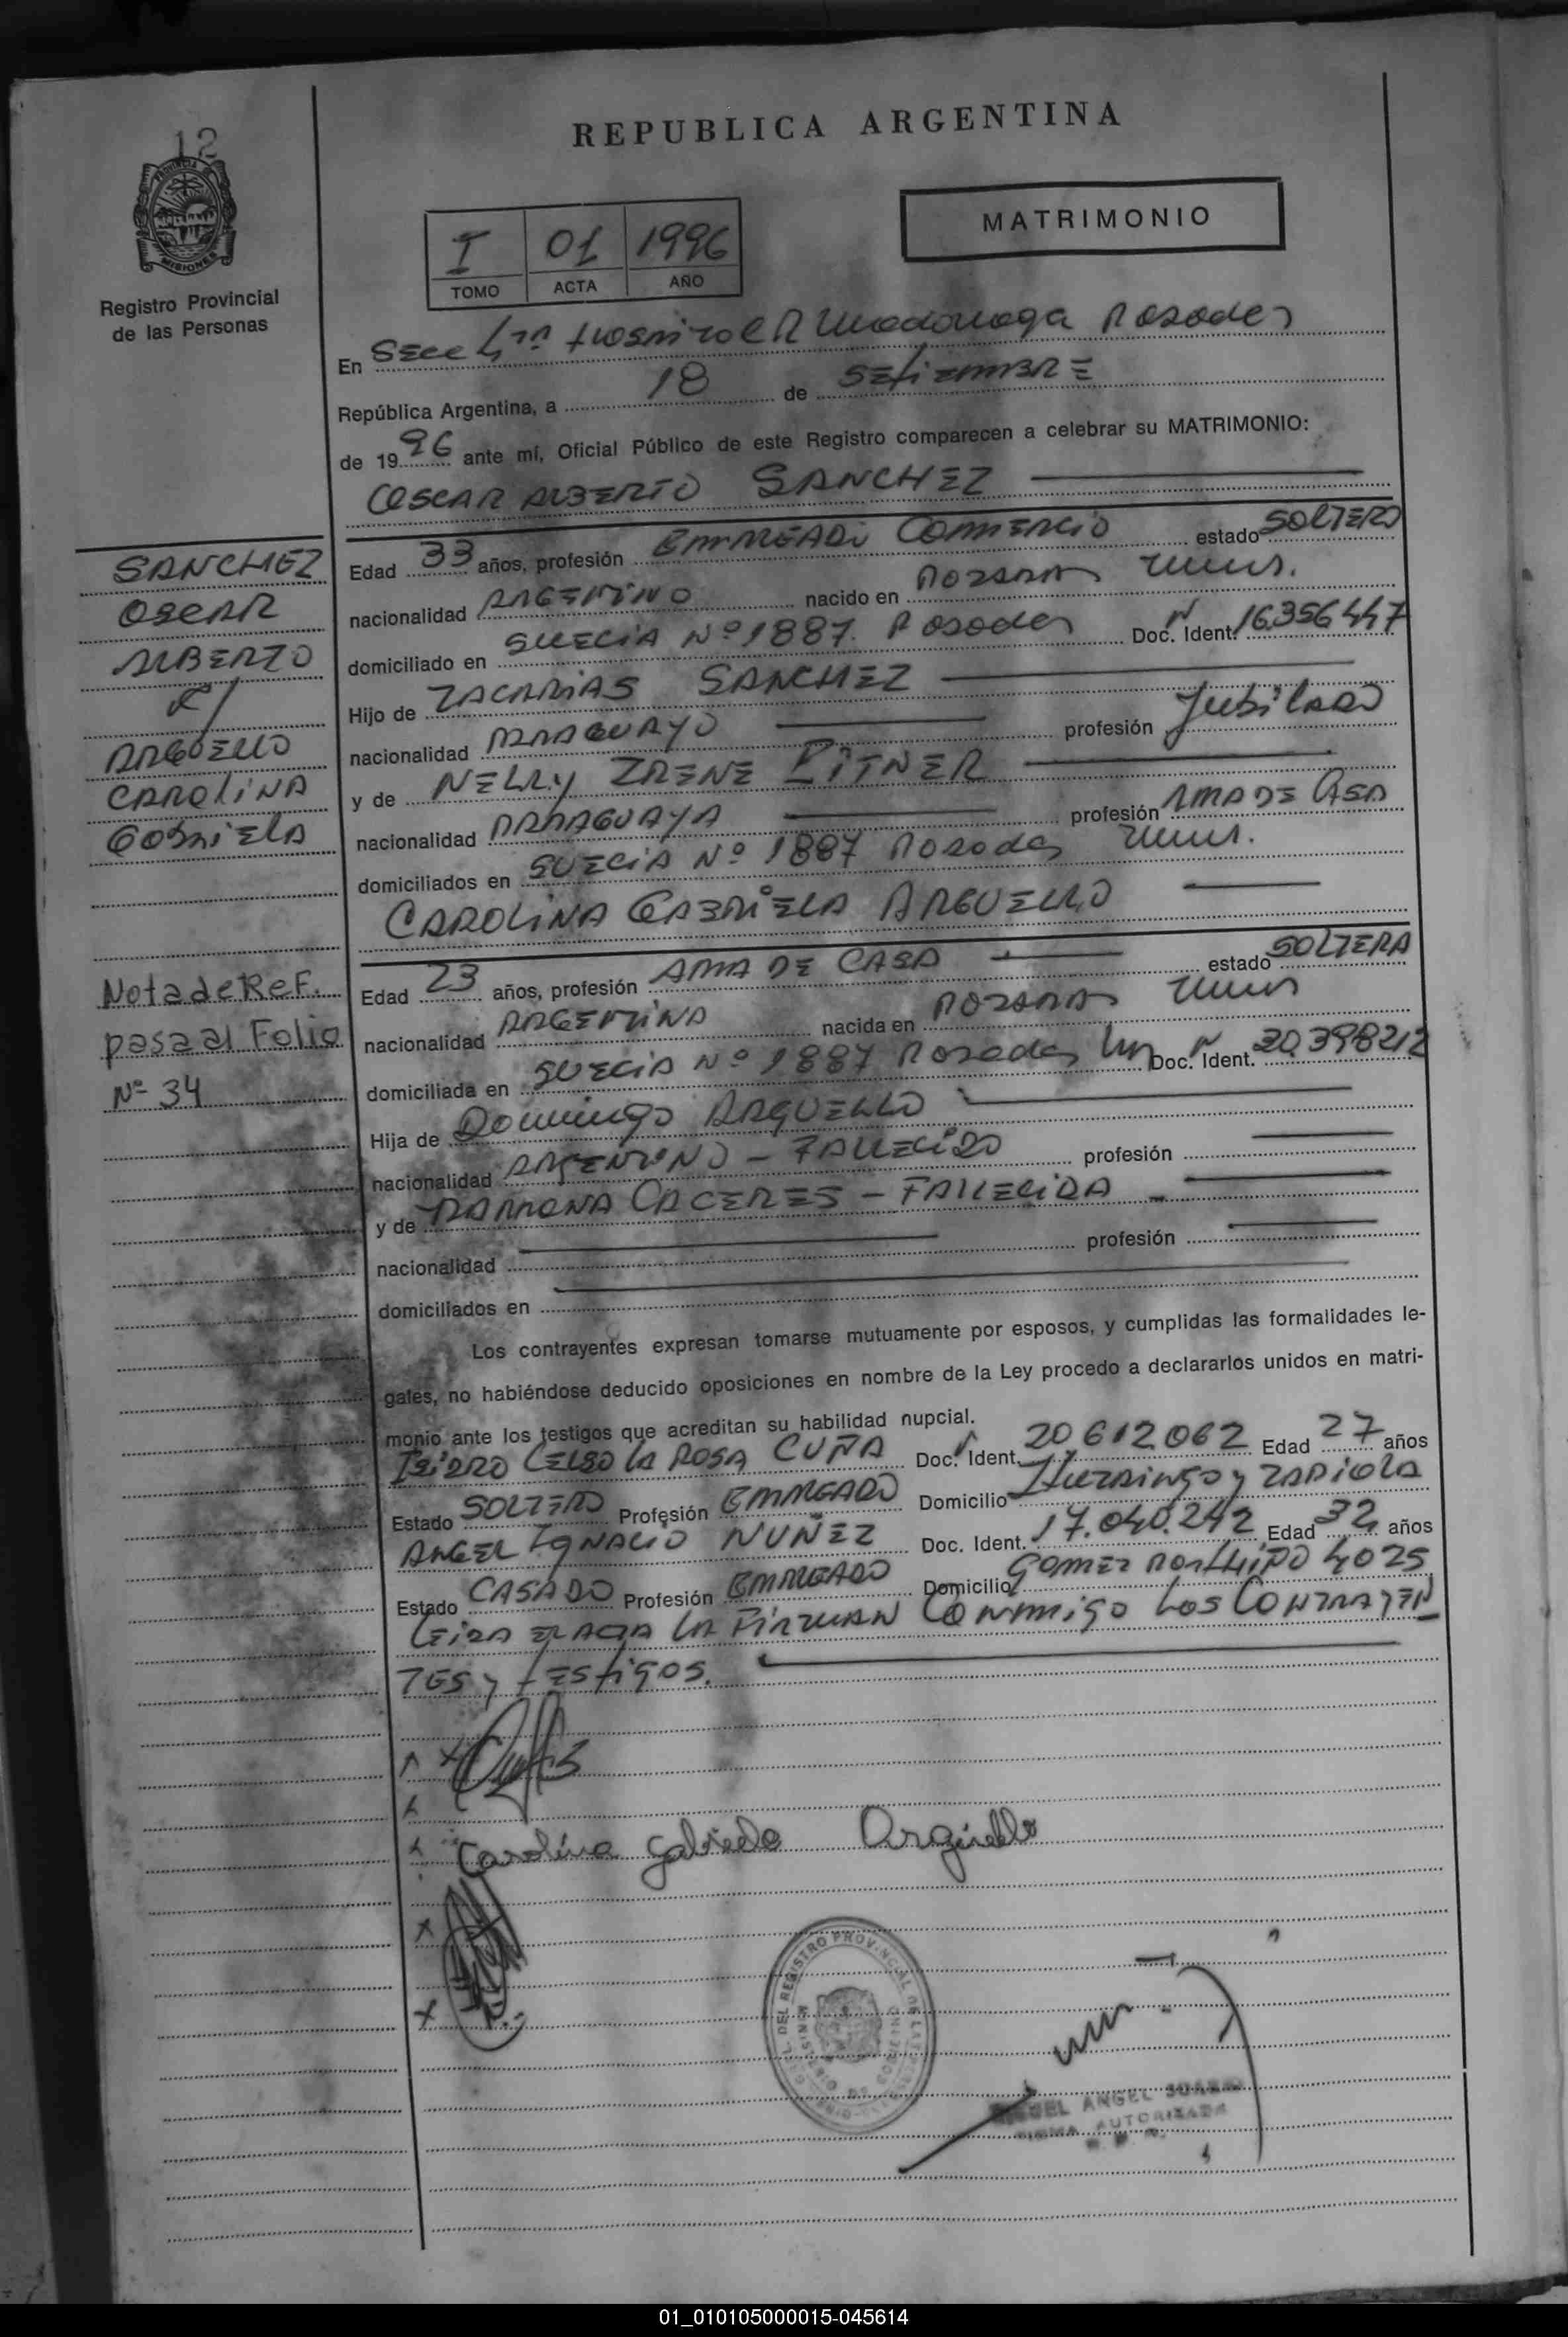 12
REPUBLICA ARGENTINA
PROVINCIA DE
MISIONES
Registro Provincial
de las Personas
MATRIMONIO
I 01 1996
TOMO ACTA AÑO
En Secc Posadas
República Argentina, a 18 de SETIEMBRE
de 1996 ante mí, Oficial Público de este Registro comparecen a celebrar su MATRIMONIO:
OSCAR ALBERTO SANCHEZ
SANCHEZ
OSCAR
ALBERTO
c/
ARGUELLO
CAROLINA
GABRIELA
Edad 33 años, profesión EMPLEADO COMERCIO estado SOLTERO
nacionalidad ARGENTINO nacido en POSADAS
domiciliado en SUECIA Nº 1887. Posadas Doc. Ident. 16.356.447
Hijo de ZACARIAS SANCHEZ
nacionalidad PARAGUAYO profesión Jubilado
y de NELLY IRENE PITNER
nacionalidad PARAGUAYA profesión AMA DE CASA
domiciliados en SUECIA Nº 1887 Posadas
CAROLINA GABRIELA ARGUELLO
Nota de Ref.
pasa al Folio
Nº 34
Edad 23 años, profesión AMA DE CASA estado SOLTERA
nacionalidad ARGENTINA nacida en POSADAS
domiciliada en SUECIA Nº 1887 Posadas Doc. Ident. 20.398212
Hija de Domingo ARGUELLO
nacionalidad ARGENTINO - FALLECIDO profesión
y de RAMONA CACERES - FALLECIDA
nacionalidad profesión
domiciliados en
Los contrayentes expresan tomarse mutuamente por esposos, y cumplidas las formalidades le-
gales, no habiéndose deducido oposiciones en nombre de la Ley procedo a declararlos unidos en matri-
monio ante los testigos que acreditan su habilidad nupcial.
ISIDRO CELSO LA ROSA CUÑA Doc. Ident. 20612062 Edad 27 años
Estado SOLTERO Profesión EMPLEADO Domicilio Ituzaingo y ZAPIOLA
ANGEL IGNACIO NUÑEZ Doc. Ident. 17.040.242 Edad 32 años
Estado CASADO Profesión EMPLEADO Domicilio GOMEZ PORTIÑO 4025
LEIDA EL ACTA LA FIRMAN CONMIGO LOS CONTRAYEN
TES y TESTIGOS.
Carolina Gabriela Arguello
DEL REGISTRO PROVINCIAL DE LAS
MIGUEL ANGEL
FIRMA AUTORIZADA
01_010105000015-045614